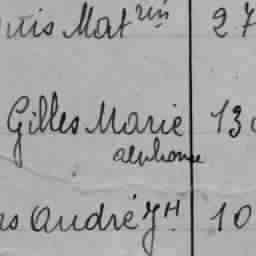 Mat rin 27
Gilles Marie 13
alphonse
André Jh 10